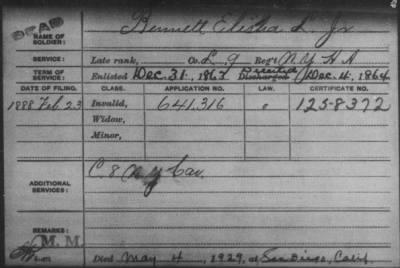 DEAD
NAME OF SOLDIER: Bennett Elisha L Jr
SERVICE: Late rank, Co. L, 9 Reg't N Y H A
TERM OF SERVICE: Enlisted Dec. 31, 1863 Deserted Discharged Dec. 4, 1864
DATE OF FILING. CLASS. APPLICATION NO. LAW. CERTIFICATE NO.
1888 Feb. 23 Invalid, 641.316 " 1258372
Widow,
Minor,
ADDITIONAL SERVICES: C 8 N Y Cav.
REMARKS:
M. M.
Died May 4, 1929, at San Diego, Calif.